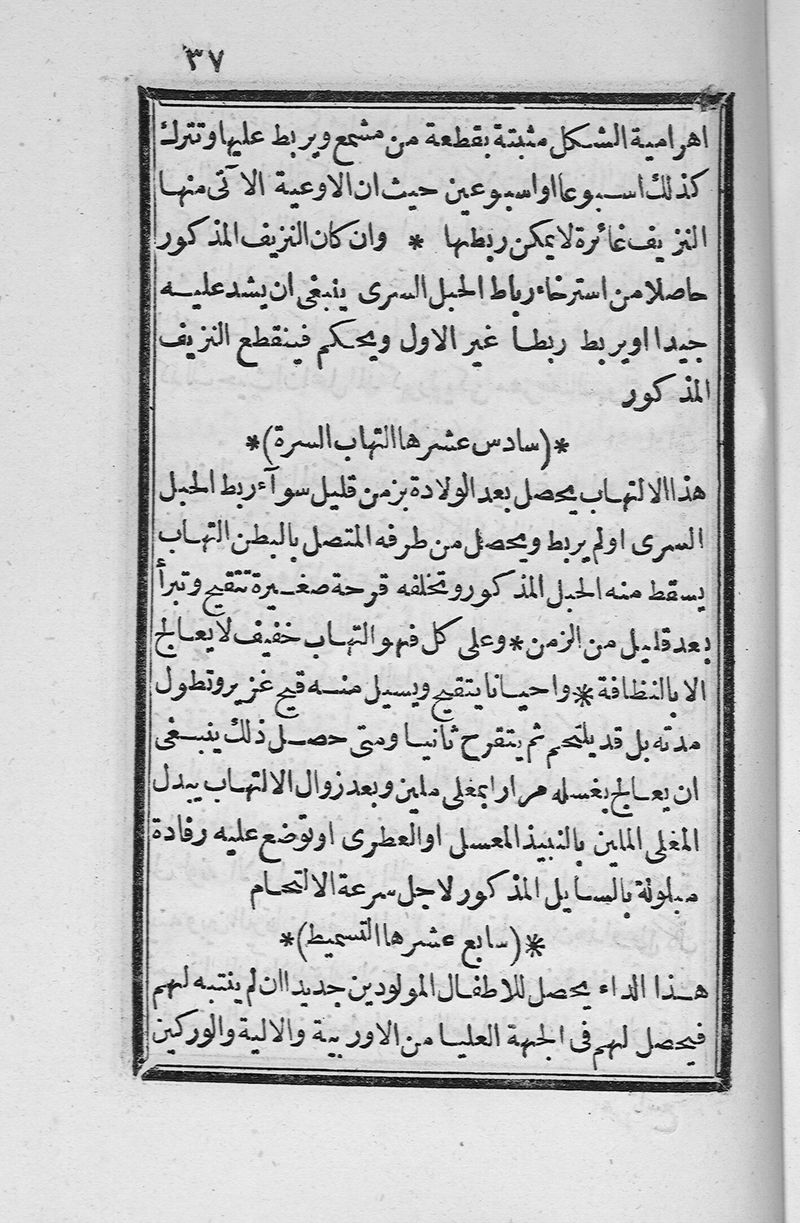 ٣٧
اهرامية الشكل مثبتة بقطعة من مشمع ويربط عليها وتترك
كذلك اسبوعا او اسبوعين حيث ان الاوعية الاتى منها
النزيف غائرة لا يمكن ربطها * وان كان النزيف المذكور
حاصلا من استرخاء رباط الحبل السرى ينبغى ان يشد عليه
جيدا او يربط ربطا غير الاول ويحكم فينقطع النزيف
المذكور
*(سادس عشرها التهاب السرة)*
هذا الالتهاب يحصل بعد الولادة بزمن قليل سوآء ربط الحبل
السرى او لم يربط ويحصل من طرفه المتصل بالبطن التهاب
يسقط منه الحبل المذكور وتخلفه قرحة صغيرة تتقيح وتبرأ
بعد قليل من الزمن * وعلى كل فهو التهاب خفيف لا يعالج
الا بالنظافة * واحيانا يتقيح ويسيل منه قيح غزير وتطول
مدته بل قد يلتحم ثم يتقرح ثانيا ومتى حصل ذلك ينبغى
ان يعالج بغسله مرارا بمغلى ملين وبعد زوال الالتهاب يبدل
المغلى الملين بالنبيذ المعسل او العطرى او توضع عليه رفادة
مبلولة بالسايل المذكور لاجل سرعة الالتحام
*(سابع عشرها التسميط)*
هذا الداء يحصل للاطفال المولودين جديدا ان لم ينتبه لهم
فيحصل لهم فى الجهة العليا من الاوربية والالية والوركين